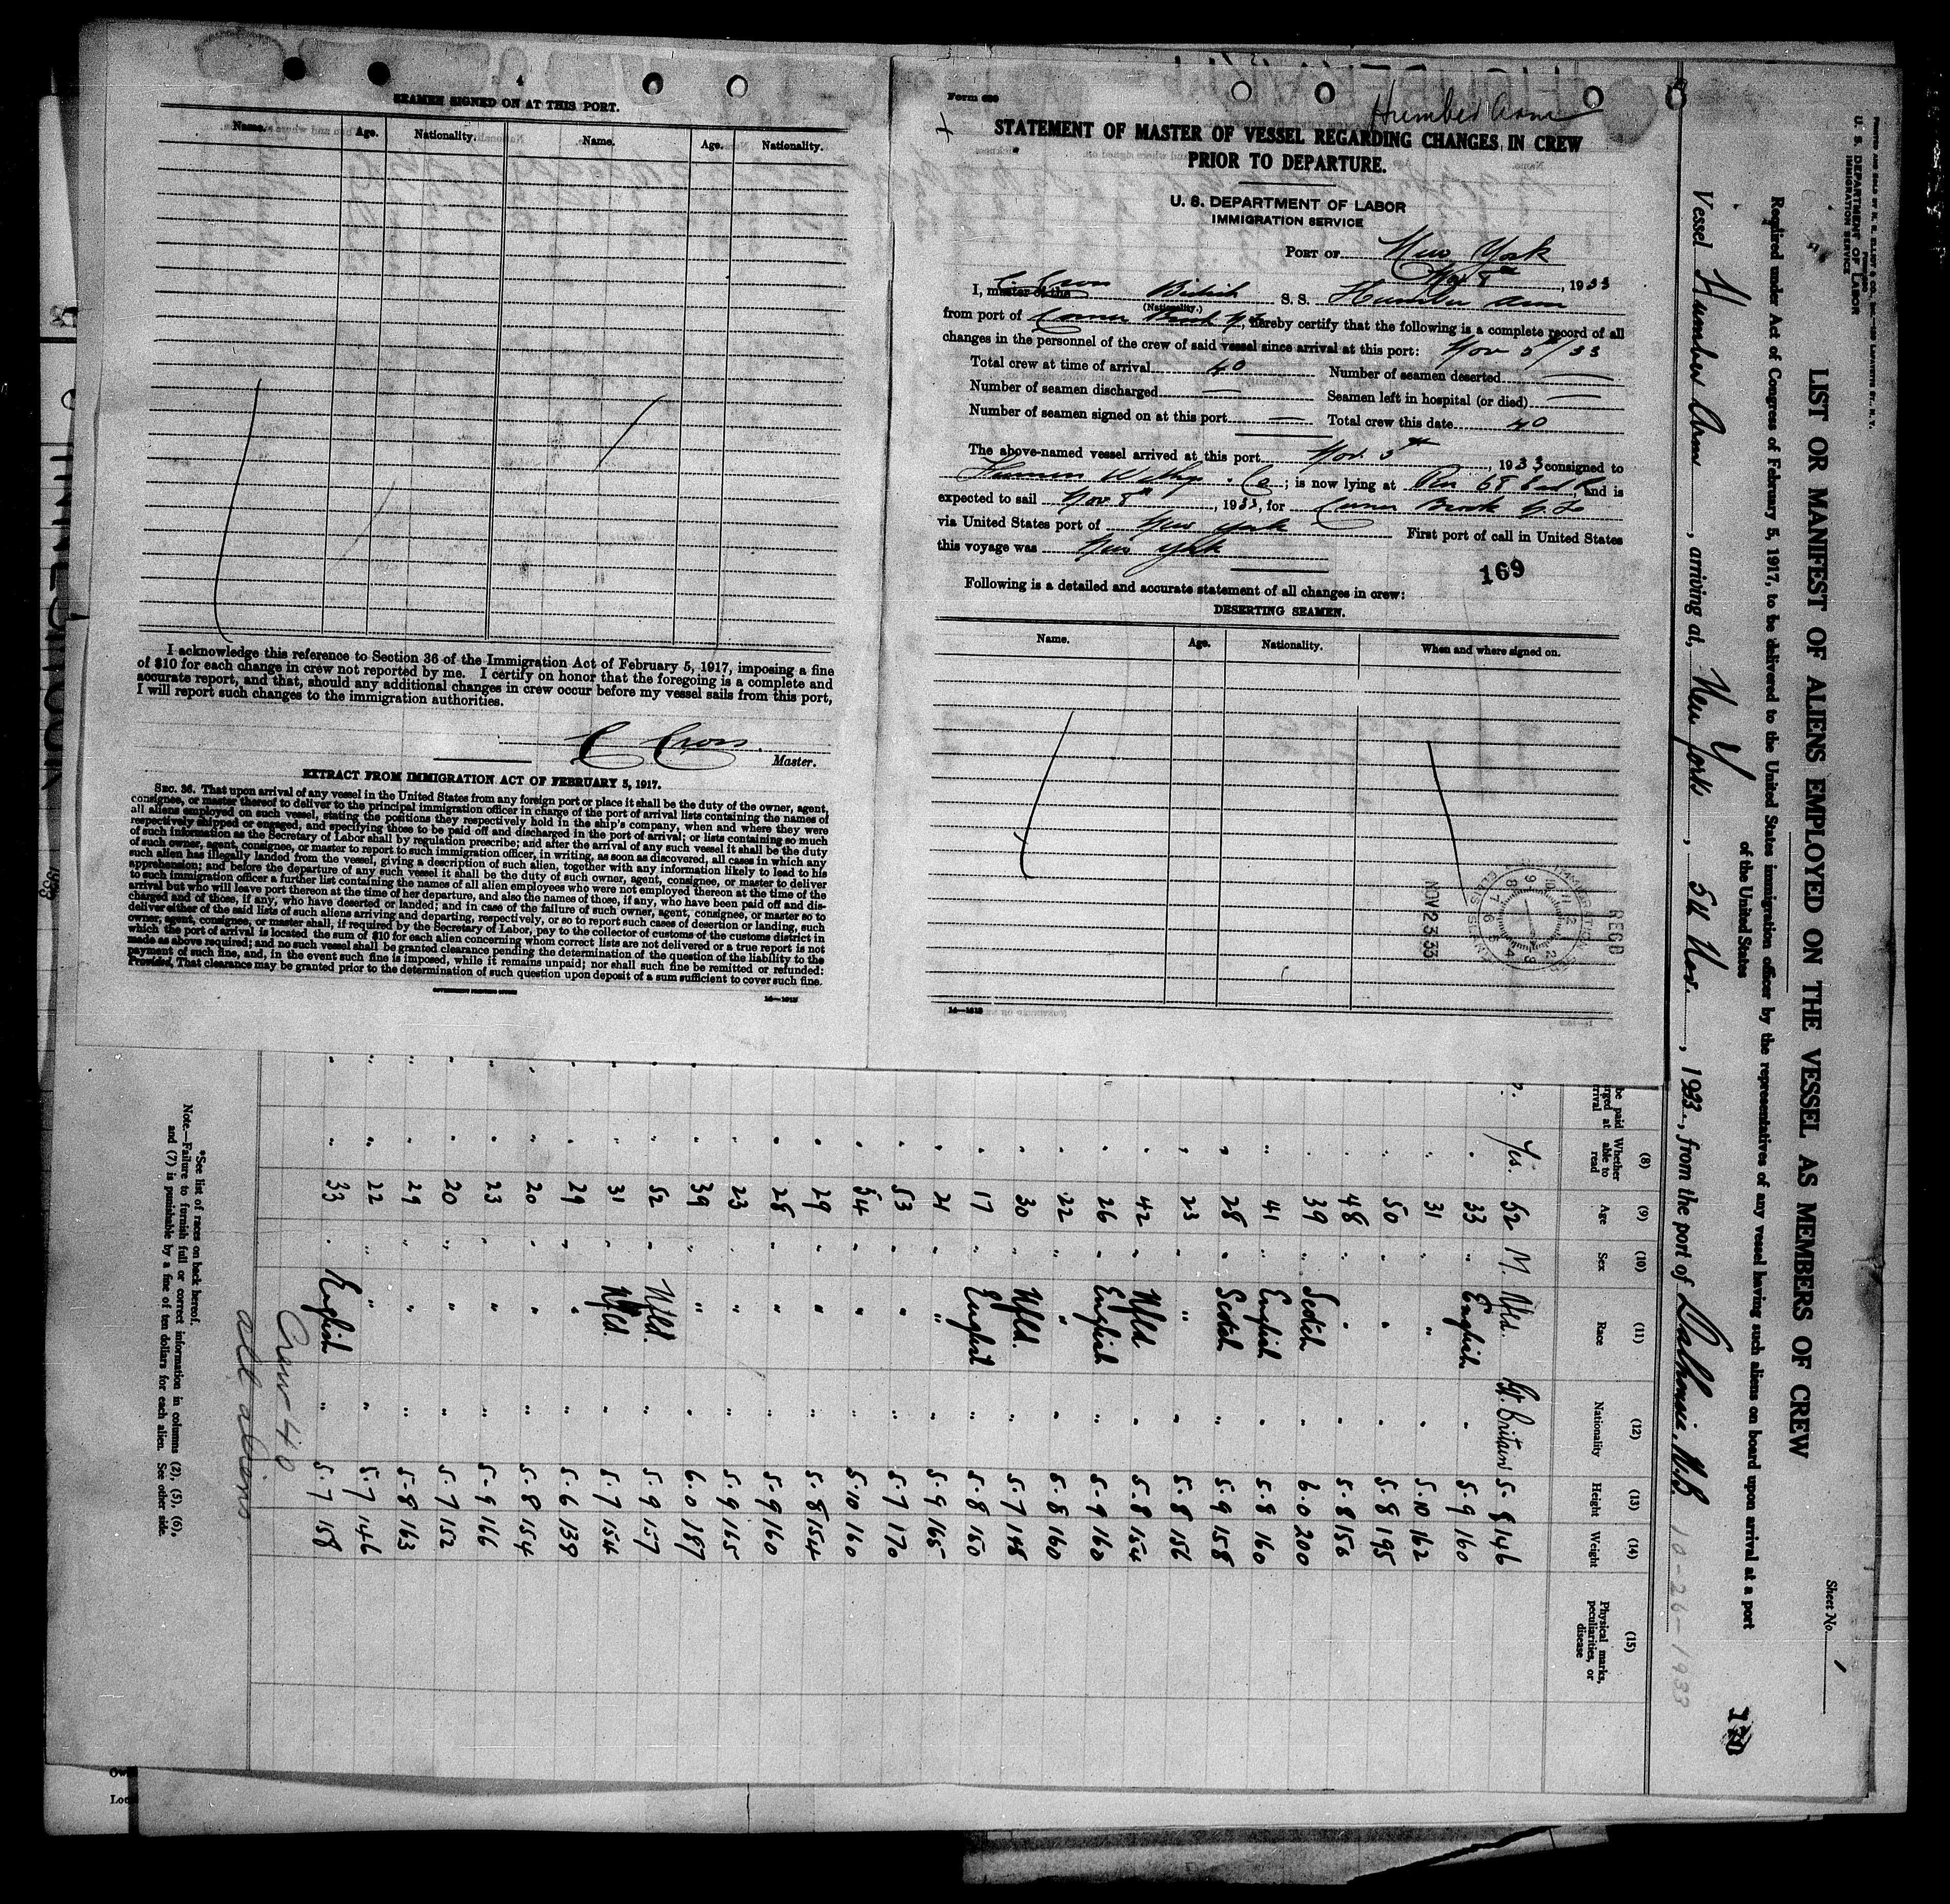 SEAMEN SIGNED ON AT THIS PORT.
Name. Age. Nationality. Name. Age. Nationality.
I acknowledge this reference to Section 36 of the Immigration Act of February 5, 1917, imposing a fine
of $10 for each change in crew not reported by me. I certify on honor that the foregoing is a complete and
accurate report, and that, should any additional changes in crew occur before my vessel sails from this port,
I will report such changes to the immigration authorities.
C Cross.
Master.
EXTRACT FROM IMMIGRATION ACT OF FEBRUARY 5, 1917.
SEC. 36. That upon arrival of any vessel in the United States from any foreign port or place it shall be the duty of the owner, agent,
consignee, or master thereof to deliver to the principal immigration officer in charge of the port of arrival lists containing the names of
all aliens employed on such vessel, stating the positions they respectively hold in the ship's company, when and where they were
respectively shipped or engaged, and specifying those to be paid off and discharged in the port of arrival; or lists containing so much
of such information as the Secretary of Labor shall by regulation prescribe; and after the arrival of any such vessel it shall be the duty
of such owner, agent, consignee, or master to report to such immigration officer, in writing, as soon as discovered, all cases in which any
such alien has illegally landed from the vessel, giving a description of such alien, together with any information likely to lead to his
apprehension; and before the departure of any such vessel it shall be the duty of such owner, agent, consignee, or master to deliver
to such immigration officer a further list containing the names of all alien employees who were not employed thereon at the time of the
arrival but who will leave port thereon at the time of her departure, and also the names of those, if any, who have been paid off and dis-
charged and of those, if any, who have deserted or landed; and in case of the failure of such owner, agent, consignee, or master so to
deliver either of the said lists of such aliens arriving and departing, respectively, or so to report such cases of desertion or landing, such
owner, agent, consignee, or master shall, if required by the Secretary of Labor, pay to the collector of customs of the customs district in
which the port of arrival is located the sum of $10 for each alien concerning whom correct lists are not delivered or a true report is not
made as above required; and no such vessel shall be granted clearance pending the determination of the question of the liability to the
payment of such fine, and, in the event such fine is imposed, while it remains unpaid; nor shall such fine be remitted or refunded:
Provided, That clearance may be granted prior to the determination of such question upon deposit of a sum sufficient to cover such fine.
GOVERNMENT PRINTING OFFICE
Form 680
Humber Arm
STATEMENT OF MASTER OF VESSEL REGARDING CHANGES IN CREW
PRIOR TO DEPARTURE.
U. S. DEPARTMENT OF LABOR
IMMIGRATION SERVICE
PORT OF New York
Nov 8th, 1933
I, C Cross master of the British S. S. Humber Arm
(Nationality.)
from port of Corner Brook N.F., hereby certify that the following is a complete record of all
changes in the personnel of the crew of said vessel since arrival at this port: Nov 5/33
Total crew at time of arrival 40 Number of seamen deserted
Number of seamen discharged Seamen left in hospital (or died)
Number of seamen signed on at this port Total crew this date 40
The above-named vessel arrived at this port Nov. 5th, 1933 consigned to
Co; is now lying at and is
expected to sail Nov 8th, 1933, for Corner Brook N.F.
via United States port of New York First port of call in United States
this voyage was New York
169
Following is a detailed and accurate statement of all changes in crew:
DESERTING SEAMEN.
Name. Age. Nationality. When and where signed on.
REC'D
NOV 23 33
U. S. DEPARTMENT OF LABOR
IMMIGRATION SERVICE
Sheet No. 1
LIST OR MANIFEST OF ALIENS EMPLOYED ON THE VESSEL AS MEMBERS OF CREW
Required under Act of Congress of February 5, 1917, to be delivered to the United States immigration officer by the representatives of any vessel having such aliens on board upon arrival at a port
of the United States
170
Vessel Humber Arm, arriving at New York, 5th Nov., 1933, from the port of Dalhousie, N.B. 10-26-1933
be paid
rged at
rrival
(8) Whether able to read (9) Age (10) Sex (11) Race (12) Nationality (13) Height (14) Weight (15) Physical marks, peculiarities, or disease
Yes. 52 M. Nfld. Gt. Britain 5-8 146
" 33 " English " 5-9 160
" 31 " " " 5-10 162
" 50 " " " 5-8 195
" 48 " " " 5-8 156
" 39 " Scotch " 6-0 200
" 41 " English " 5-8 160
" 28 " Scotch " 5-9 158
" 23 " " " 5-8 156
" 42 " Nfld " 5-8 154
" 26 " English " 5-9 160
" 22 " " " 5-8 160
" 30 " Nfld. " 5-7 148
" 17 " English " 5-8 150
" 21 " " " 5-9 165
" 53 " " " 5-7 170
" 54 " " " 5-10 160
" 29 " " " 5-8 154
" 28 " " " 5-9 160
" 23 " " " 5-9 165
" 39 " " " 6-0 187
" 52 " Nfld. " 5-9 157
" 31 " Nfld. " 5-7 154
" 29 " " " 5-6 139
" 20 " " " 5-8 154
" 23 " " " 5-9 166
" 20 " " " 5-7 152
" 29 " " " 5-8 163
" 22 " " " 5-7 146
" 33 " English " 5-7 158
Crew 40
all aliens
*See list of races on back hereof.
Note.—Failure to furnish full or correct information in columns (2), (5), (6),
and (7) is punishable by a fine of ten dollars for each alien. See other side.